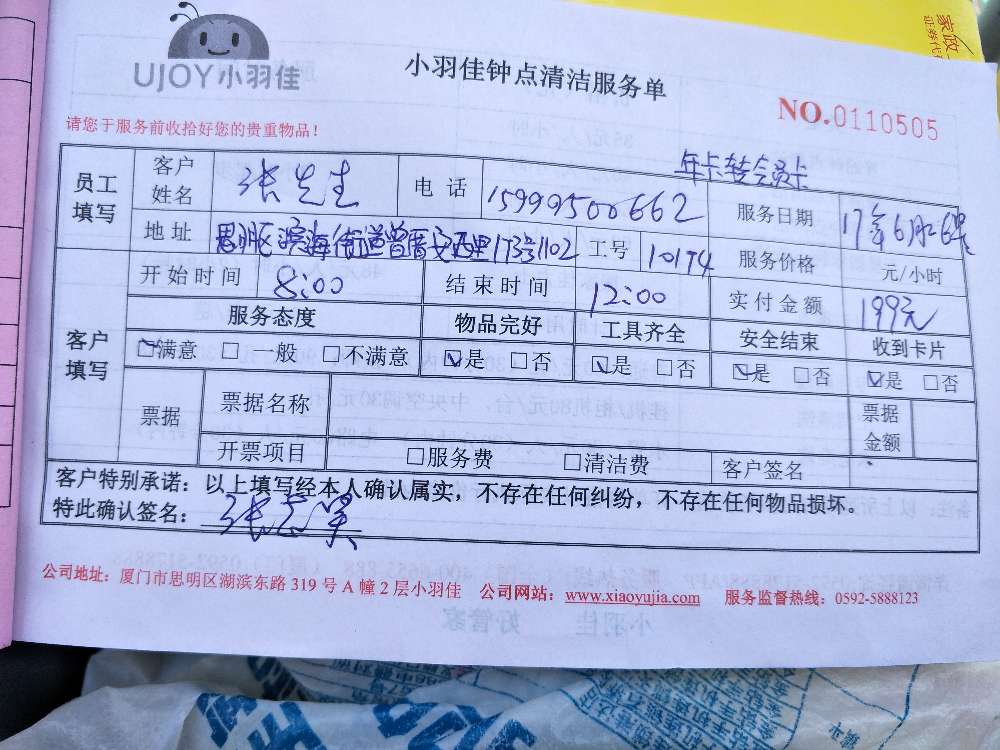 UJOY小羽佳
小羽佳钟点清洁服务单
NO.0110505
请您于服务前收拾好您的贵重物品！
年卡转会员卡
员工填写 客户姓名 张先生 电话 15999500662 服务日期 17年6月26号
地址 思明区滨海街道曾厝安西里173号1102 工号 10174 服务价格 元/小时
客户填写 开始时间 8:00 结束时间 12:00 实付金额 199元
服务态度 物品完好 工具齐全 安全结束 收到卡片
满意 一般 不满意 是 否 是 否 是 否 是 否
票据 票据名称 票据金额
开票项目 服务费 清洁费 客户签名
客户特别承诺：以上填写经本人确认属实，不存在任何纠纷，不存在任何物品损坏。
特此确认签名：张志昊
公司地址：厦门市思明区湖滨东路319号A幢2层小羽佳 公司网站：www.xiaoyujia.com 服务监督热线：0592-5888123